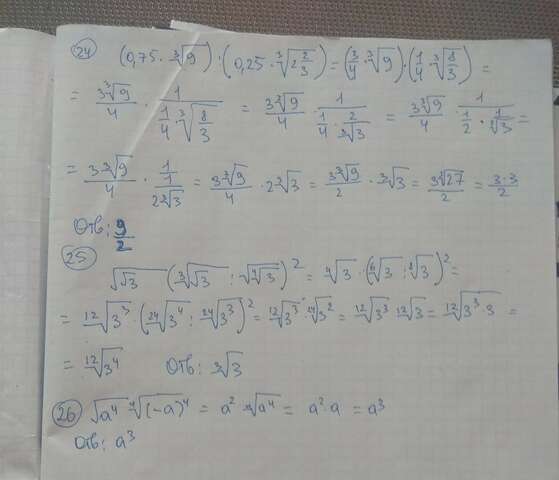 24 (0,75 · ∛9) · (0,25 · ∛(2 2/3)) = (3/4 · ∛9) · (1/4 · ∛(8/3)) =
= 3∛9/4 · 1/(1/4 · ∛(8/3)) = 3∛9/4 · 1/(1/4 · 2/∛3) = 3∛9/4 · 1/(1/2 · 1/∛3) =
= 3∛9/4 · 1/(1/(2∛3)) = 3∛9/4 · 2∛3 = 3∛9/2 · ∛3 = 3∛27/2 = 3·3/2
Отв: 9/2
25
√√3 (∛√3 : √∜3)² = ∜3 · (⁶√3 : ⁸√3)² =
= ¹²√3³ · (²⁴√3⁴ : ²⁴√3³)² = ¹²√3³ · ²⁴√3² = ¹²√3³ · ¹²√3 = ¹²√(3³·3) =
= ¹²√3⁴ Отв: ∛3
26 √a⁴ ∜(-a)⁴ = a² · ∜a⁴ = a² · a = a³
Отв: a³